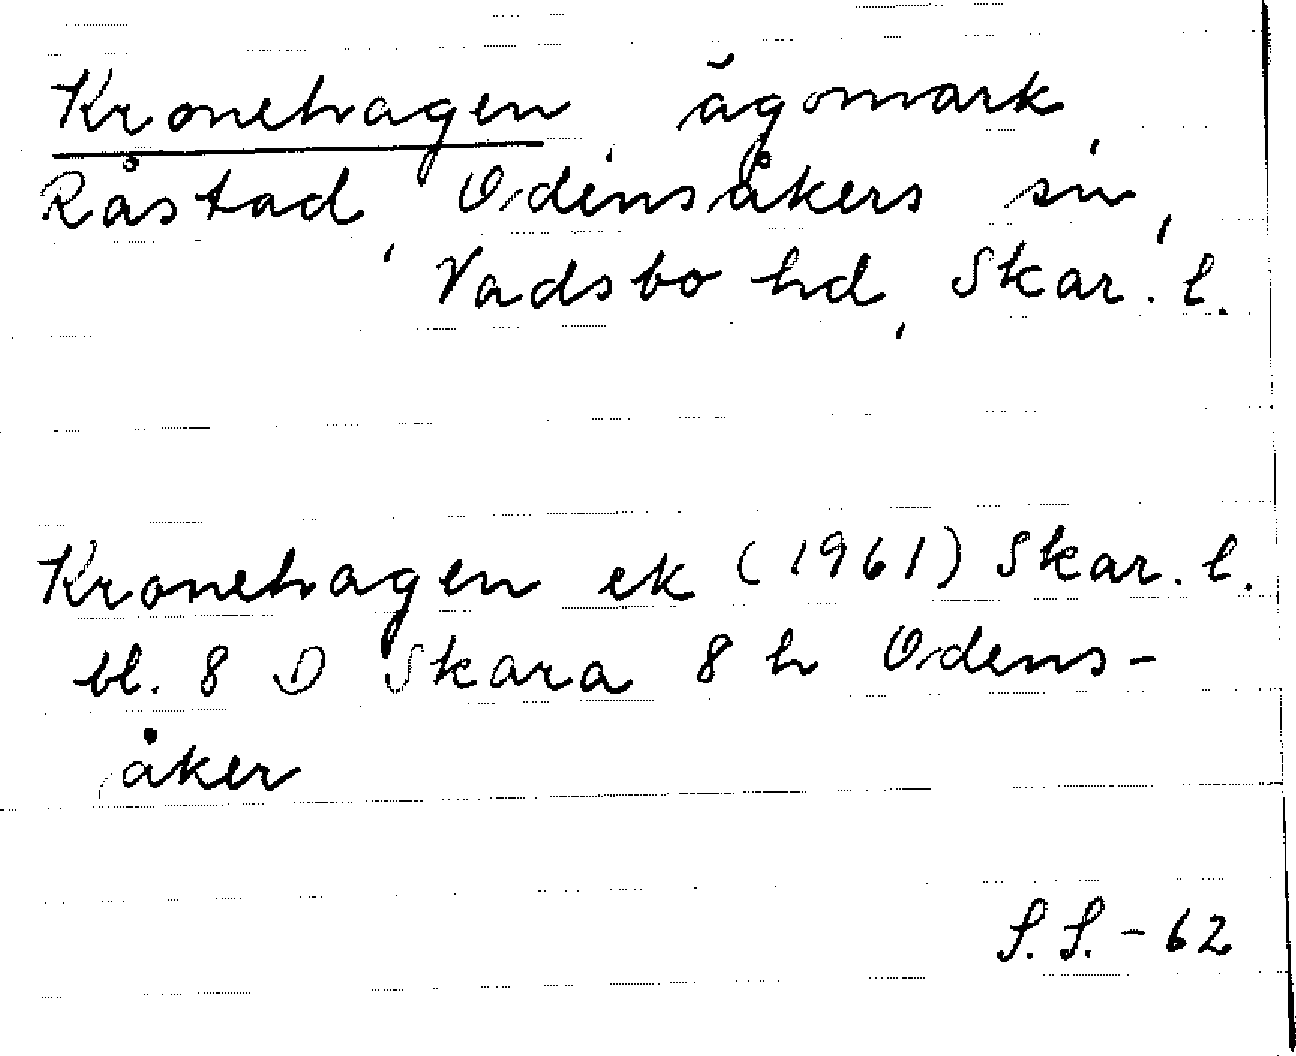 Kronehagen, ägomark,
Råstad, Odensåkers sn,
Vadsbo hd, Skar. l.
Kronehagen ek (1961) Skar. l.
bl. 8 D Skara 8 h Odens-
åker
S. S. - 62